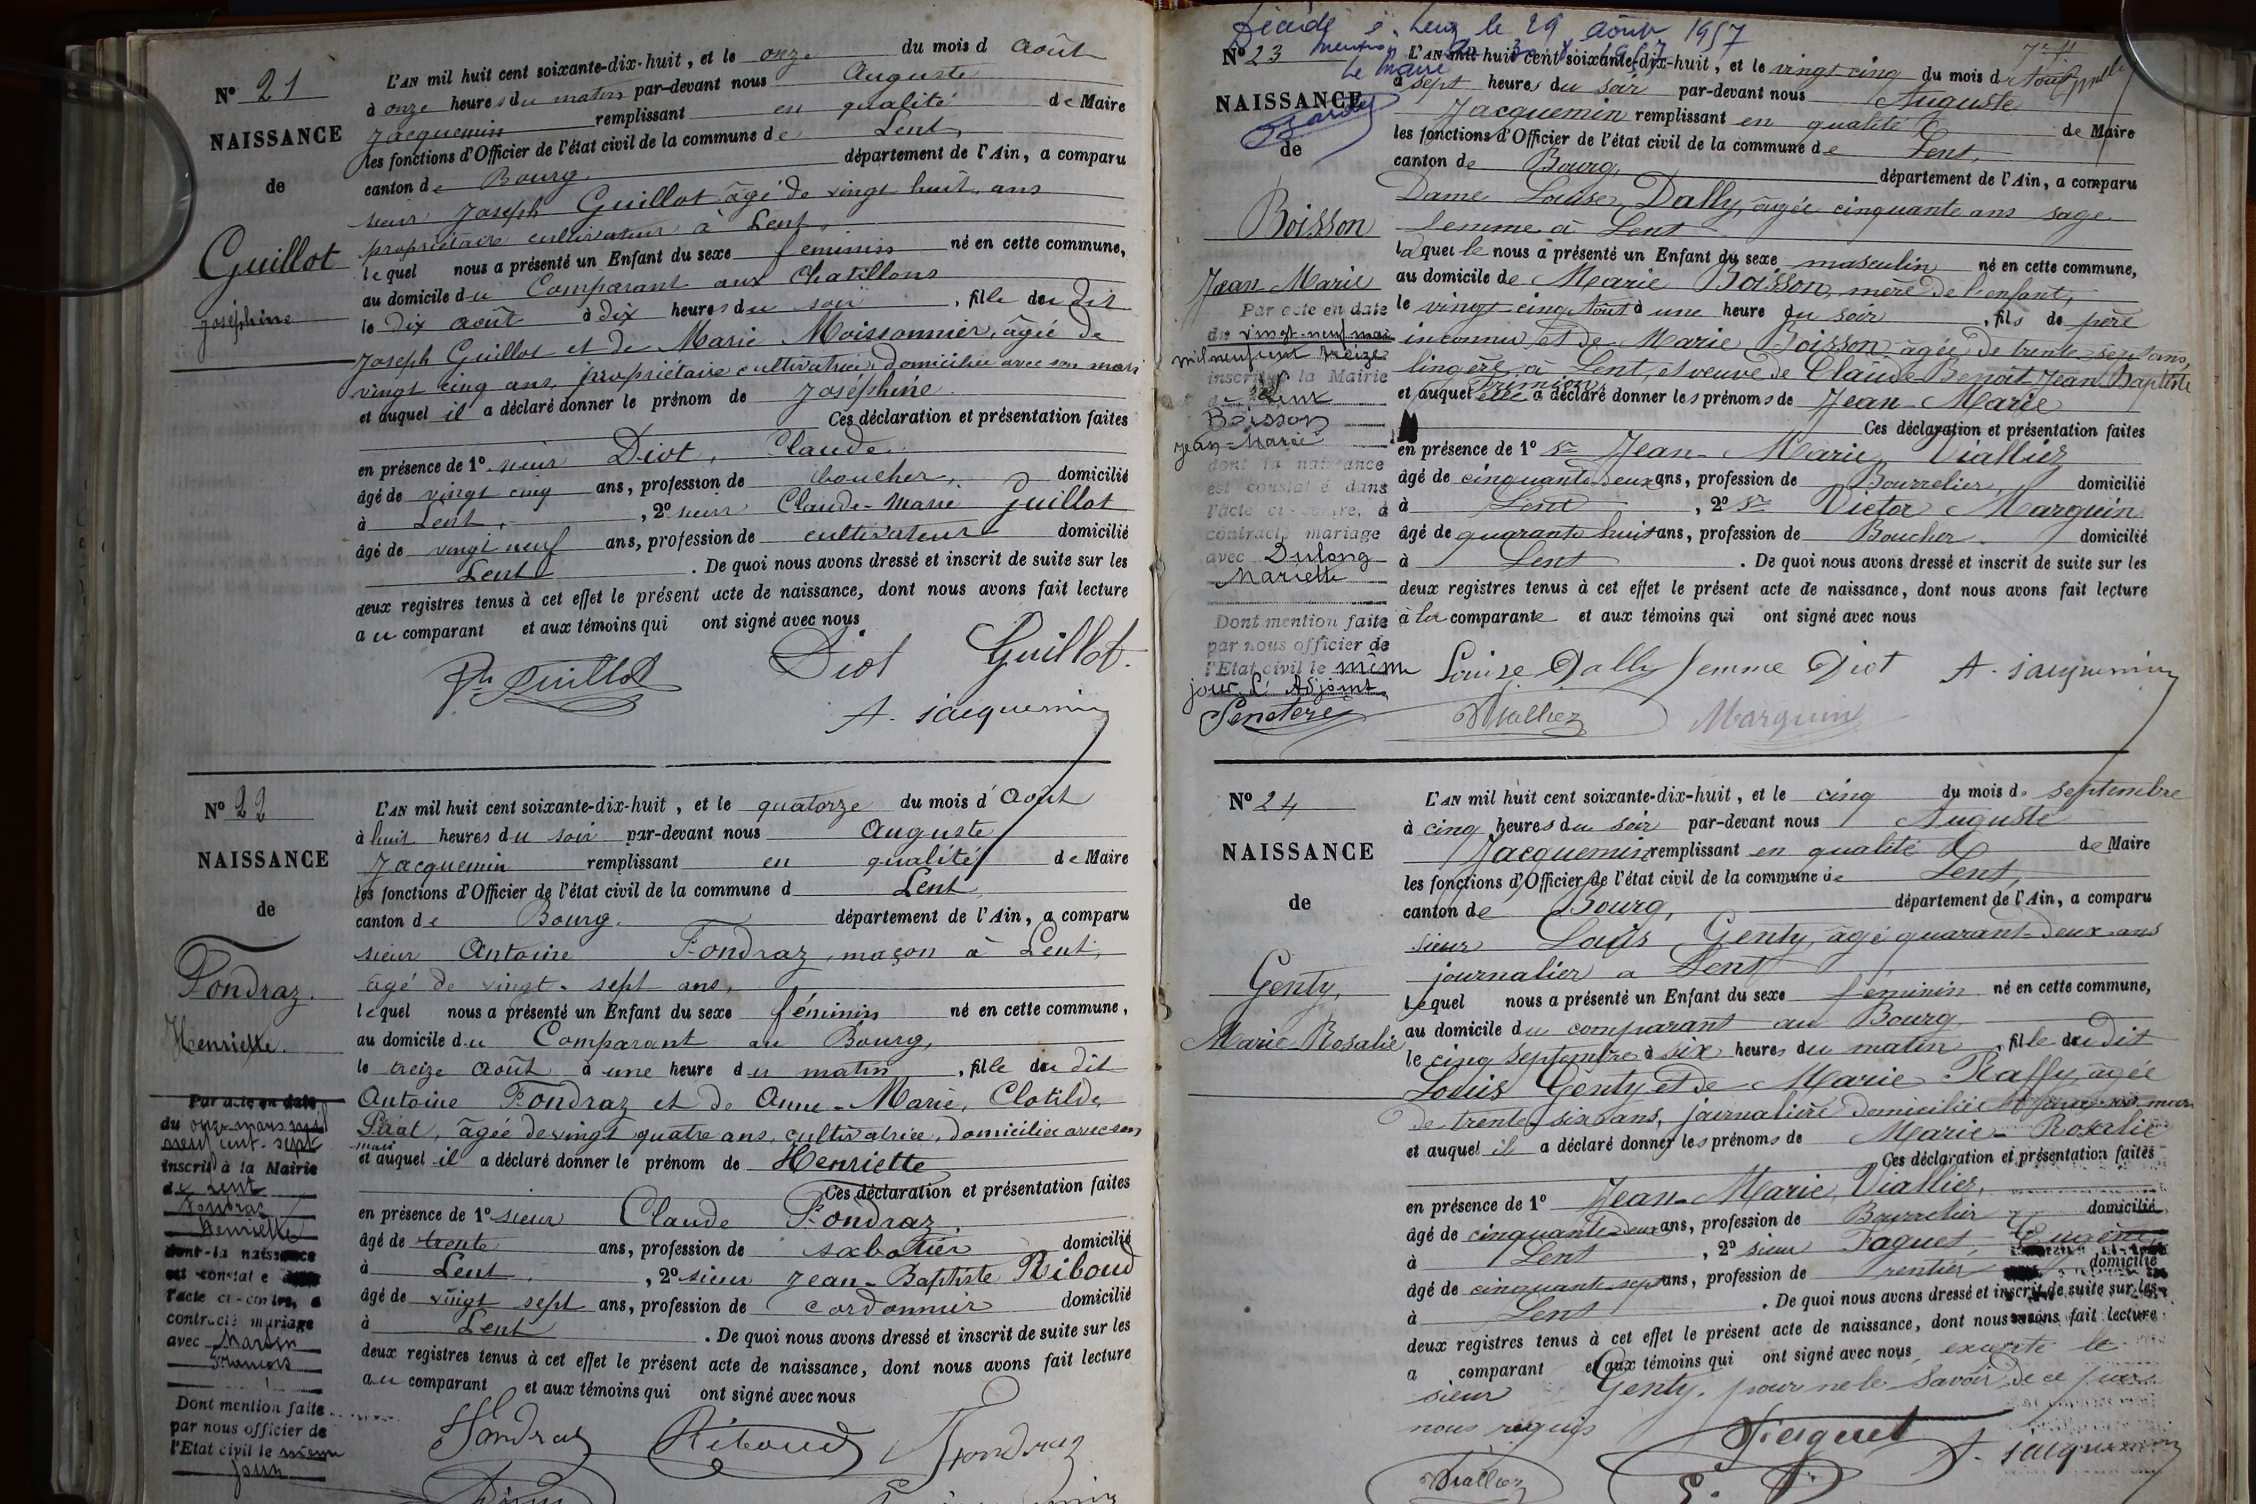 N° 21
NAISSANCE
de
Guillot
Joséphine
L'AN mil huit cent soixante-dix-huit, et le onze du mois d Août
à onze heures du matin par-devant nous Auguste
Jacquemin remplissant en qualité de Maire
les fonctions d'Officier de l'état civil de la commune de Lent,
canton de Bourg. département de l'Ain, a comparu
sieur Joseph Guillot âgé de vingt huit ans
propriétaire cultivateur à Lent,
lequel nous a présenté un Enfant du sexe féminin né en cette commune,
au domicile du Comparant aux Chatillons
le dix août à dix heures du soir, fille du dit
Joseph Guillot et de Marie Moissonnier, âgée de
vingt cinq ans, propriétaire cultivatrice, domiciliée avec son mari
et auquel il a déclaré donner le prénom de Joséphine
Ces déclaration et présentation faites
en présence de 1° sieur Diot, Claude.
âgé de vingt cinq ans, profession de boucher, domicilié
à Lent, 2° sieur Claude-Marie Guillot
âgé de vingt neuf ans, profession de cultivateur domicilié
Lent. De quoi nous avons dressé et inscrit de suite sur les
deux registres tenus à cet effet le présent acte de naissance, dont nous avons fait lecture
au comparant et aux témoins qui ont signé avec nous
Guillot Diot Guillot.
A. Jacquemin
N° 22
NAISSANCE
de
Fondraz.
Henriette.
Par acte en date
du onze mars mil
neuf cent sept
inscrit à la Mairie
de Lent
Fondraz
Henriette
dont la naissance
est constaté dans
l'acte ci-contre, a
contracté mariage
avec
François
Dont mention faite
par nous officier de
l'Etat civil le même
jour
L'AN mil huit cent soixante-dix-huit, et le quatorze du mois d'Août
à huit heures du soir par-devant nous Auguste
Jacquemin remplissant en qualité de Maire
les fonctions d'Officier de l'état civil de la commune d Lent
canton de Bourg. département de l'Ain, a comparu
sieur Antoine Fondraz, maçon à Lent,
âgé de vingt-sept ans,
lequel nous a présenté un Enfant du sexe féminin né en cette commune,
au domicile du Comparant au Bourg,
le treize août à une heure du matin, fille du dit
Antoine Fondraz et de Anne-Marie, Clotilde
Pirat, âgée de vingt quatre ans, cultivatrice, domiciliée avec son
mari
et auquel il a déclaré donner le prénom de Henriette
Ces déclaration et présentation faites
en présence de 1° sieur Claude Fondraz,
âgé de trente ans, profession de sabotier domicilié
à Lent, 2° sieur Jean-Baptiste Riboud
âgé de vingt sept ans, profession de cordonnier domicilié
à Lent. De quoi nous avons dressé et inscrit de suite sur les
deux registres tenus à cet effet le présent acte de naissance, dont nous avons fait lecture
au comparant et aux témoins qui ont signé avec nous
Fondraz Riboud Fondraz
Décédé à Lent le 29 août 1957
Le Maire
N° 23
NAISSANCE
de
Boisson
Jean-Marie
Par acte en date
du vingt-neuf mai
mil neuf cent treize
inscrit à la Mairie
de Lent
Boisson
Jean-Marie
dont la naissance
est constaté dans
l'acte ci-contre, a
contracté mariage
avec Dulong
Mariette
Dont mention faite
par nous officier de
l'Etat civil le même
jour L'Adjoint
L'AN mil huit cent soixante-dix-huit, et le vingt cinq du mois d'Août
à sept heures du soir par-devant nous Auguste
Jacquemin remplissant en qualité de Maire
les fonctions d'Officier de l'état civil de la commune de Lent,
canton de Bourg, département de l'Ain, a comparu
Dame Louise, Dally, âgée cinquante ans sage
femme à Lent
laquelle nous a présenté un Enfant du sexe masculin né en cette commune,
au domicile de Marie Boisson, mère de l'enfant,
le vingt-cinq Août à une heure du soir, fils de père
inconnu et de Marie Boisson âgée de trente-sept ans,
lingère, à Lent, et veuve de Claude Benoît Jean Baptiste
et auquel elle a déclaré donner les prénoms de Jean-Marie
Ces déclaration et présentation faites
en présence de 1° Sr Jean-Marie Viallier
âgé de cinquante deux ans, profession de Bourrelier, domicilié
à Lent, 2° Sr Victor Marguin
âgé de quarante huit ans, profession de Boucher domicilié
à Lent. De quoi nous avons dressé et inscrit de suite sur les
deux registres tenus à cet effet le présent acte de naissance, dont nous avons fait lecture
à la comparante et aux témoins qui ont signé avec nous
Louise Dally femme Diot A. Jacquemin
Viallier Marguin
N° 24
NAISSANCE
de
Genty,
Marie Rosalie
L'AN mil huit cent soixante-dix-huit, et le cinq du mois de septembre
à cinq heures du soir par-devant nous Auguste
Jacquemin remplissant en qualité de Maire
les fonctions d'Officier de l'état civil de la commune de Lent,
canton de Bourg, département de l'Ain, a comparu
sieur Louis Genty, âgé quarant-deux ans
journalier a Lent
lequel nous a présenté un Enfant du sexe féminin né en cette commune,
au domicile du comparant au Bourg
le cinq septembre à six heures du matin, fille du dit
Louis Genty et de Marie Raffy, âgée
de trente-six ans, journalière domiciliée
et auquel il a déclaré donner les prénoms de Marie-Rosalie
Ces déclaration et présentation faites
en présence de 1° Jean-Marie Viallier,
âgé de cinquante-deux ans, profession de Bourrelier domicilié
à Lent, 2° sieur Faguet, Eugène
âgé de cinquante-sept ans, profession de rentier domicilié
à Lent. De quoi nous avons dressé et inscrit de suite sur les
deux registres tenus à cet effet le présent acte de naissance, dont nous avons fait lecture
a comparant et aux témoins qui ont signé avec nous, excepté le
sieur Genty, pour ne le savoir de ce par
nous requis
Faguet
Viallier A. Jacquemin